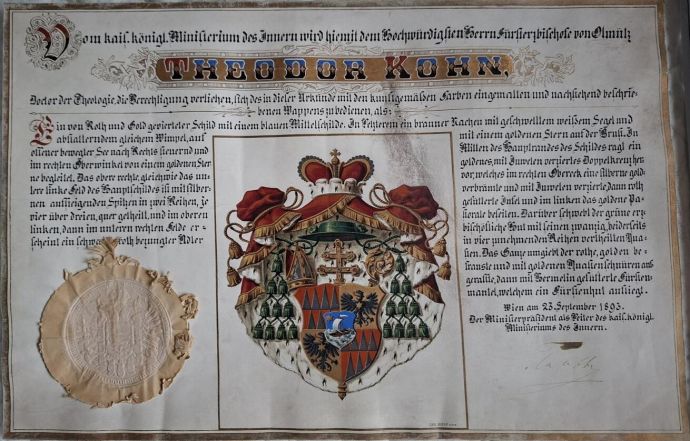 Vom kais. königl. Ministerium des Innern wird hiemit dem Hochwürdigsten Herrn Fürsterzbischofe von Olmütz
THEODOR KOHN,
Doctor der Theologie, die Berechtigung verliehen, sich des in dieser Urkunde mit den kunstgemäßen Farben eingemalten und nachstehend beschrie-
benen Wappens zu bedienen, als:
Ein von Roth und Gold gevierteter Schild mit einem blauen Mittelschilde. In letzterem ein brauner Nachen mit geschwelltem weißem Segel und
abflatterndem gleichem Wimpel, auf
offener bewegter See nach Rechts steuernd und
im rechten Oberwinkel von einem goldenen Ster-
ne begleitet. Das obere rechte, gleichwie das un-
tere linke Feld des Hauptschildes ist mit silber-
nen aufsteigenden Spitzen in zwei Reihen, je
vier über dreien, quer getheilt, und im oberen
linken, dann im unteren rechten Felde er-
scheint ein schwarzer roth bezungter Adler
mit einem goldenen Stern auf der Brust. In
Mitten des Hauptrandes des Schildes ragt ein
goldenes, mit Juwelen verziertes Doppelkreuz her-
vor, welches im rechten Obereck eine silberne gold-
verbrämte und mit Juwelen verzierte, dann roth
gefütterte Inful und im linken das goldene Pa-
storale beseiten. Darüber schwebt der grüne erz-
bischöfliche Hut mit seinen zwanzig, beiderseits
in vier zunehmenden Reihen vertheilten Qua-
sten. Das Ganze umgiebt der rothe, golden be-
franste und mit goldenen Quastenschnüren auf-
geraffte, dann mit Hermelin gefütterte Fürsten-
mantel, welchem ein Fürstenhut aufliegt.
Wien am 23. September 1893.
Der Ministerpräsident als Leiter des kais. königl.
Ministeriums des Innern.